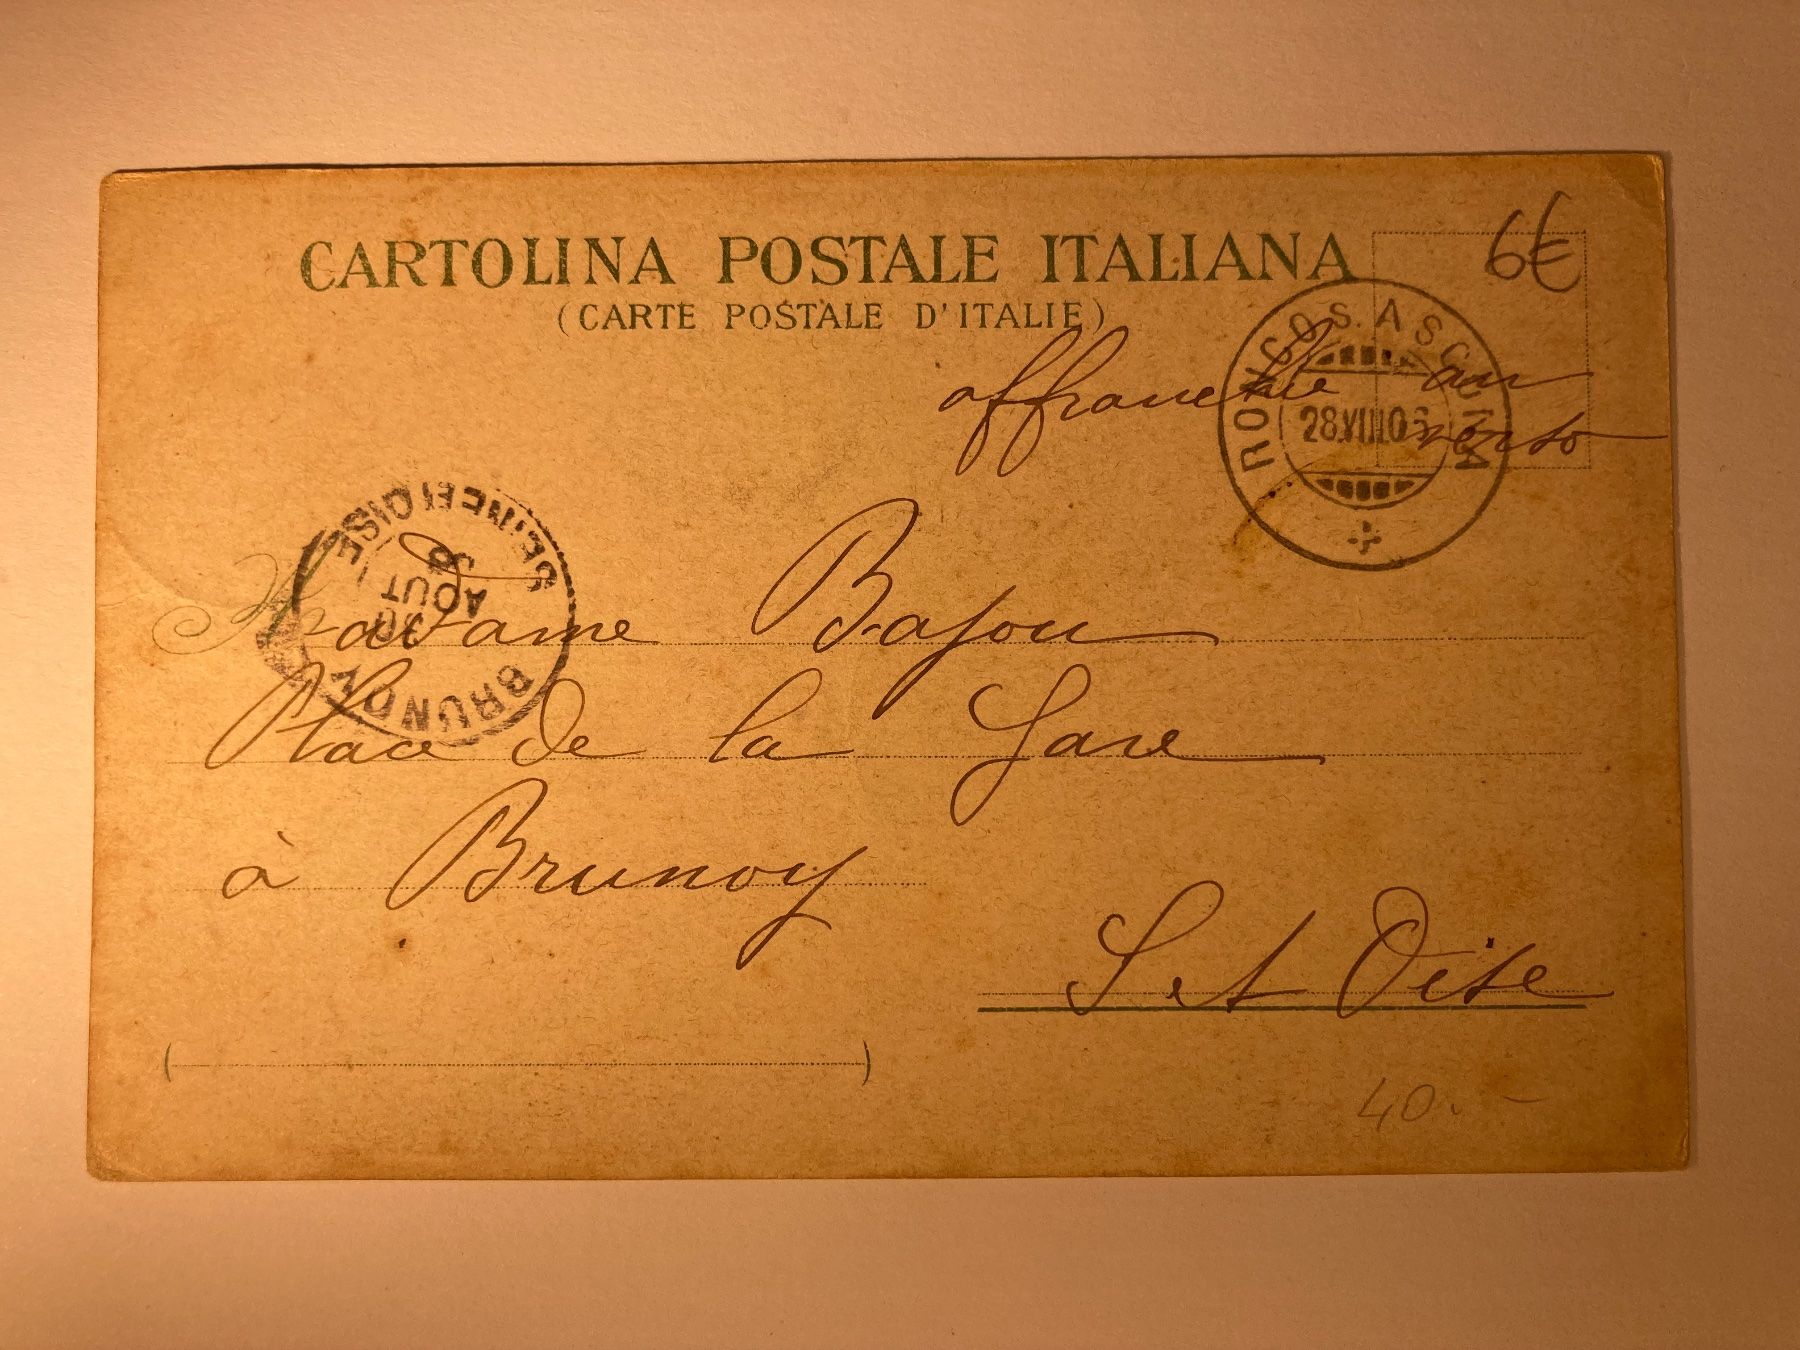 CARTOLINA POSTALE ITALIANA
(CARTE POSTALE D'ITALIE)
6€
RONCO S. ASCONA
28.VIII.06
affranchie au
verso
SEINE ET OISE
30
AOUT
06
BRUNOY
Madame Bajou
Place de la Gare
à Brunoy
S et Oise
40.-